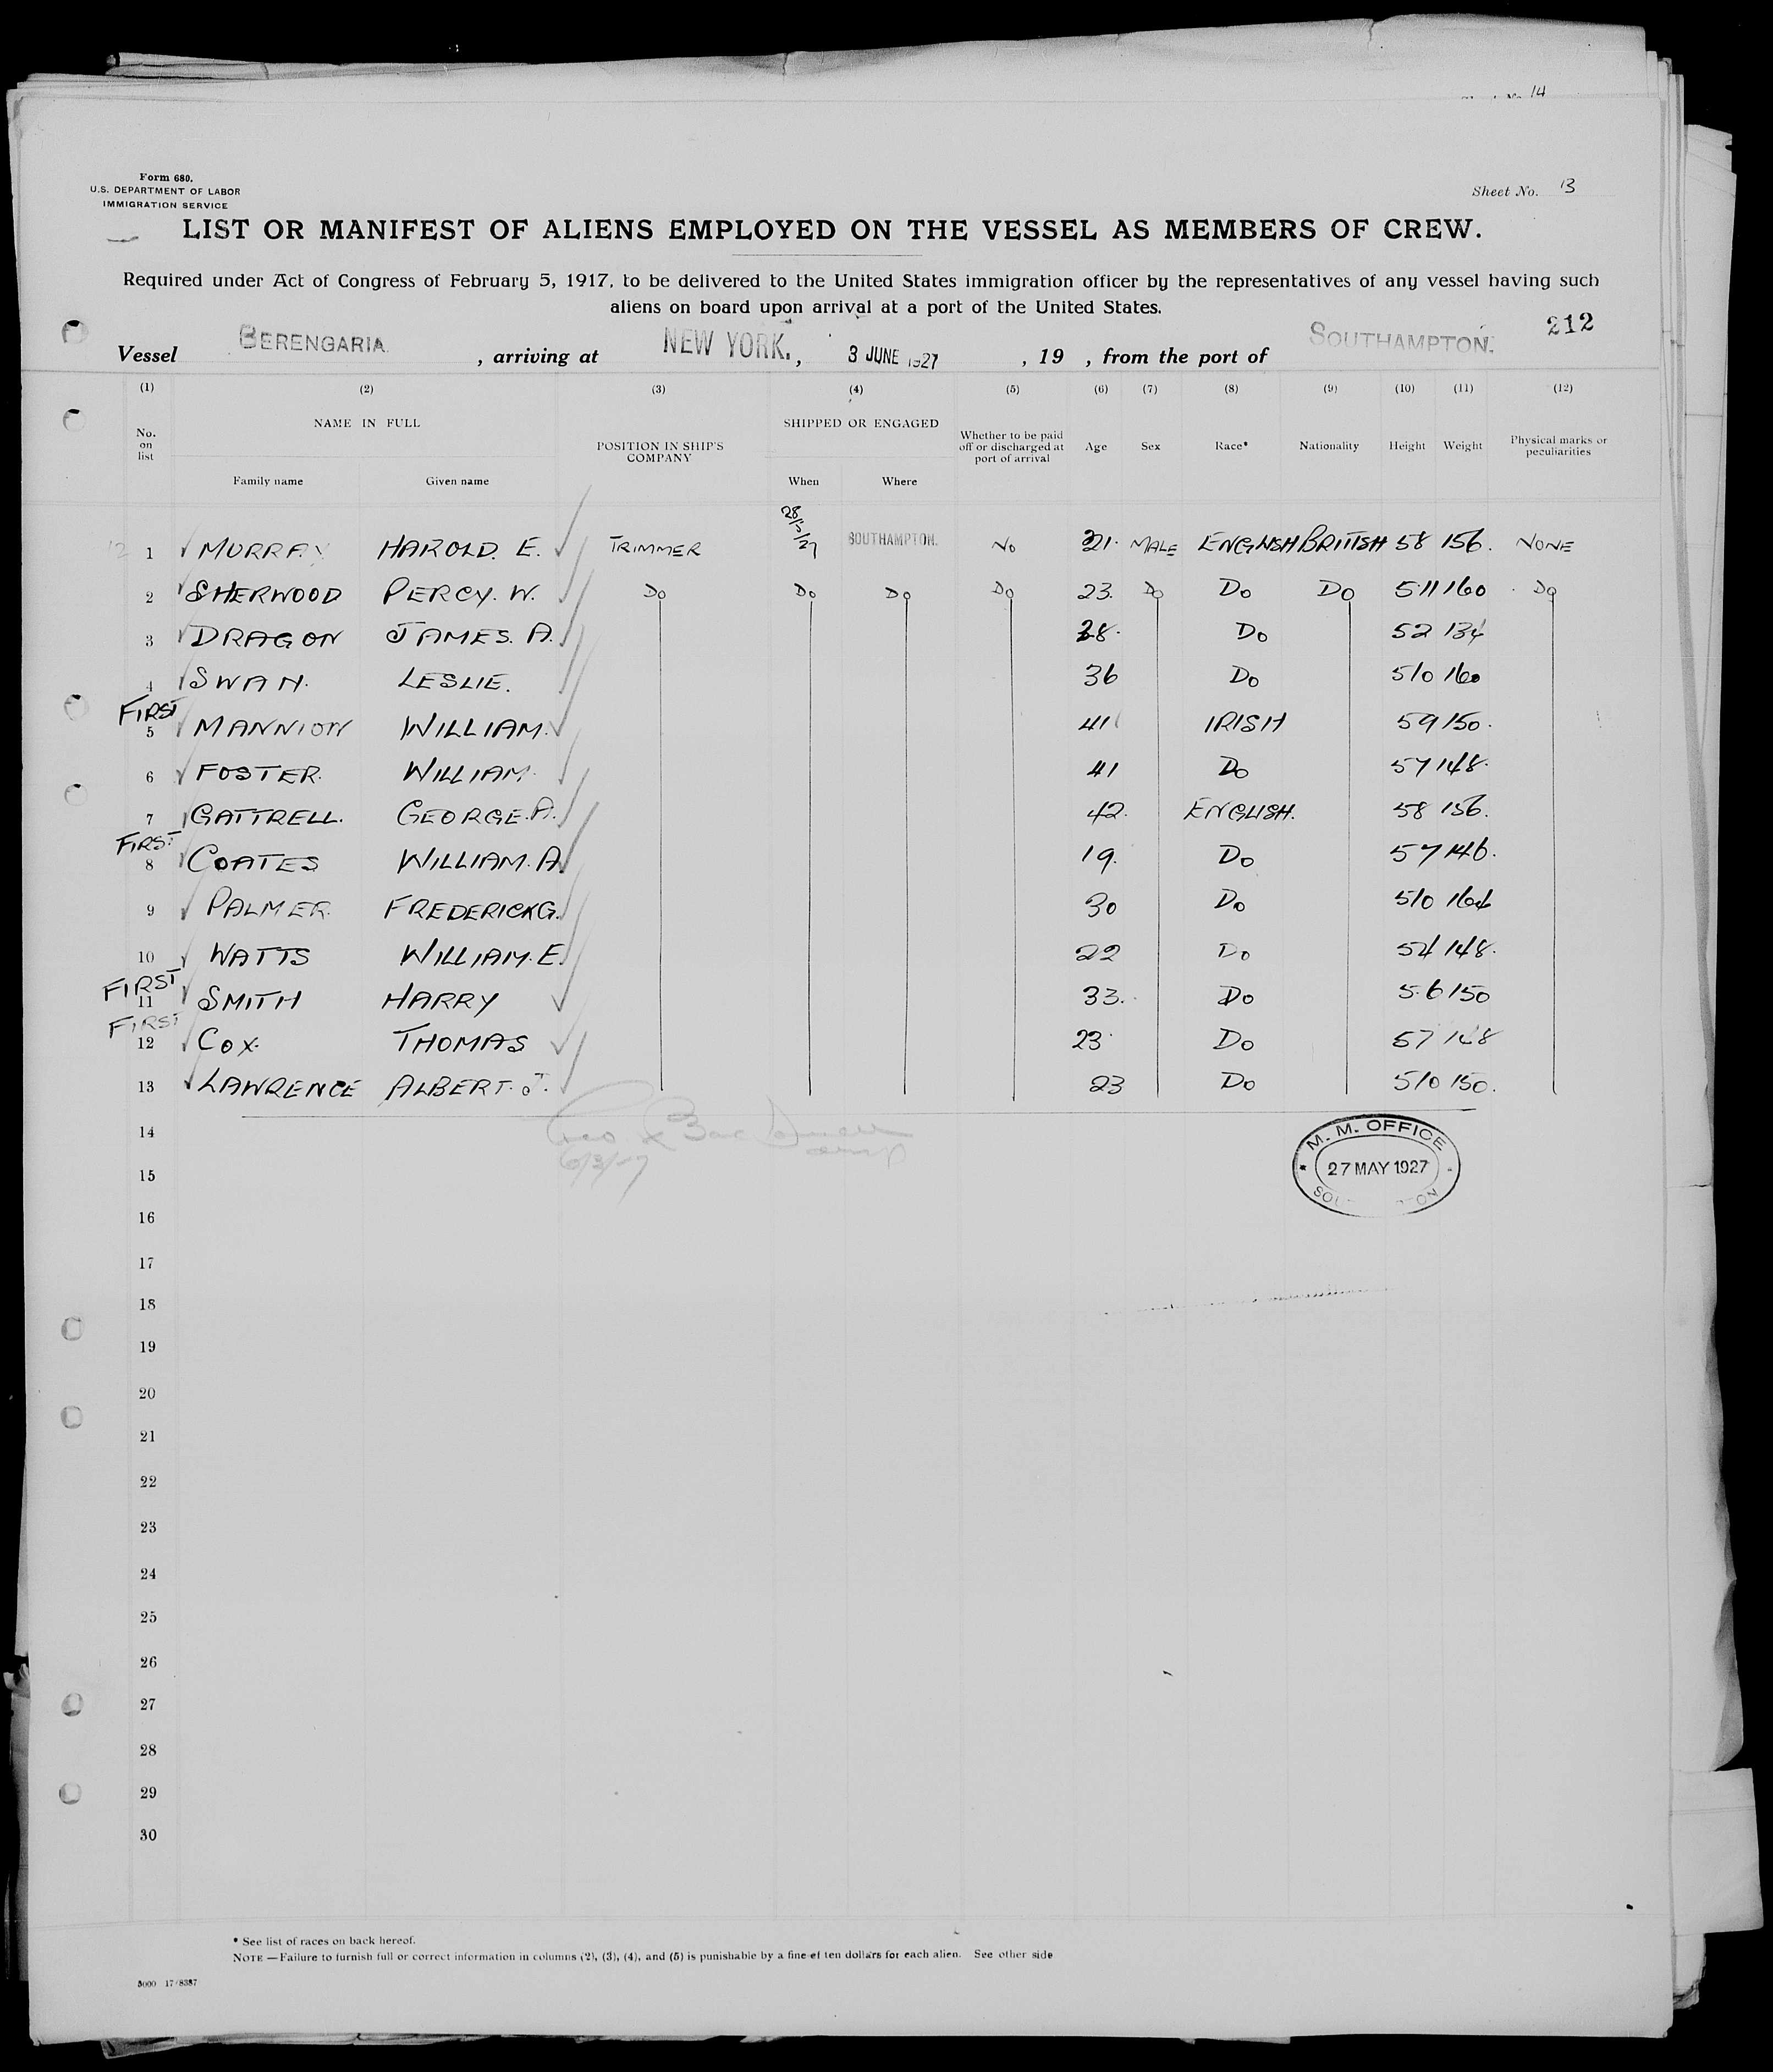 Sheet No. 14
Form 680.
U.S. DEPARTMENT OF LABOR
IMMIGRATION SERVICE
Sheet No. 13
LIST OR MANIFEST OF ALIENS EMPLOYED ON THE VESSEL AS MEMBERS OF CREW.
Required under Act of Congress of February 5, 1917, to be delivered to the United States immigration officer by the representatives of any vessel having such
aliens on board upon arrival at a port of the United States.
212
Vessel BERENGARIA, arriving at NEW YORK., 3 JUNE 1927, 19 , from the port of SOUTHAMPTON.
(1) (2) (3) (4) (5) (6) (7) (8) (9) (10) (11) (12)
No. on list NAME IN FULL POSITION IN SHIP'S COMPANY SHIPPED OR ENGAGED Whether to be paid off or discharged at port of arrival Age Sex Race* Nationality Height Weight Physical marks or peculiarities
Family name Given name When Where
1 MURRAY HAROLD. E. TRIMMER 28/5/27 SOUTHAMPTON. NO 21. MALE ENGLISH BRITISH 58 156. NONE
2 SHERWOOD PERCY. W. Do Do Do Do 23. Do Do Do 511 160 Do
3 DRAGON JAMES. A. 38. Do 52 134
4 SWAN. LESLIE. 36 Do 510 160
FIRST
5 MANNION WILLIAM. 41 IRISH 59 150.
6 FOSTER. WILLIAM. 41 Do 57 148.
7 GATTRELL. GEORGE. A. 42. ENGLISH. 58 156.
FIRST
8 COATES WILLIAM. A. 19. Do 57 146.
9 PALMER. FREDERICK G. 30 Do 510 164
10 WATTS WILLIAM. E. 22 Do 54 148.
FIRST
11 SMITH HARRY 33. Do 5.6 150
FIRST
12 COX. THOMAS 23 Do 57 148
13 LAWRENCE ALBERT. J. 23 Do 510 150.
14
M. M. OFFICE
27 MAY 1927
15
16
17
18
19
20
21
22
23
24
25
26
27
28
29
30
* See list of races on back hereof.
NOTE —Failure to furnish full or correct information in columns (2), (3), (4), and (5) is punishable by a fine of ten dollars for each alien. See other side
5000 17/8387